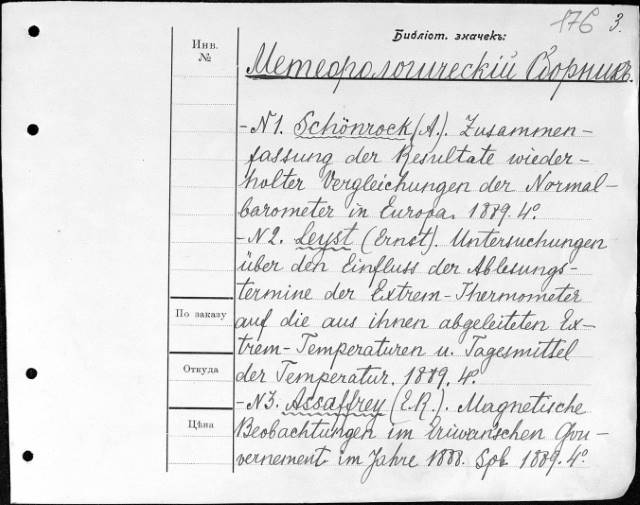 176 3.
Библіот. значекъ:
Инв.
№
Метеорологическій Сборникъ.
– N1. Schönrock (A.). Zusammen–
fassung der Resultate wieder–
holter Vergleichungen der Normal–
barometer in Europa. 1889. 4º.
– N2. Leyst (Ernst). Untersuchungen
über den Einfluss der Ablesungs–
termine der Extrem–Thermometer
По заказу
auf die aus ihnen abgeleiteten Ex–
trem–Temperaturen u. Tagesmittel
Откуда
der Temperatur. 1889. 4º.
– N3. Assaffrey (E.R.). Magnetische
Цѣна
Beobachtungen im Eriwanschen Gou–
vernement im Jahre 1888. Spb. 1889. 4º.